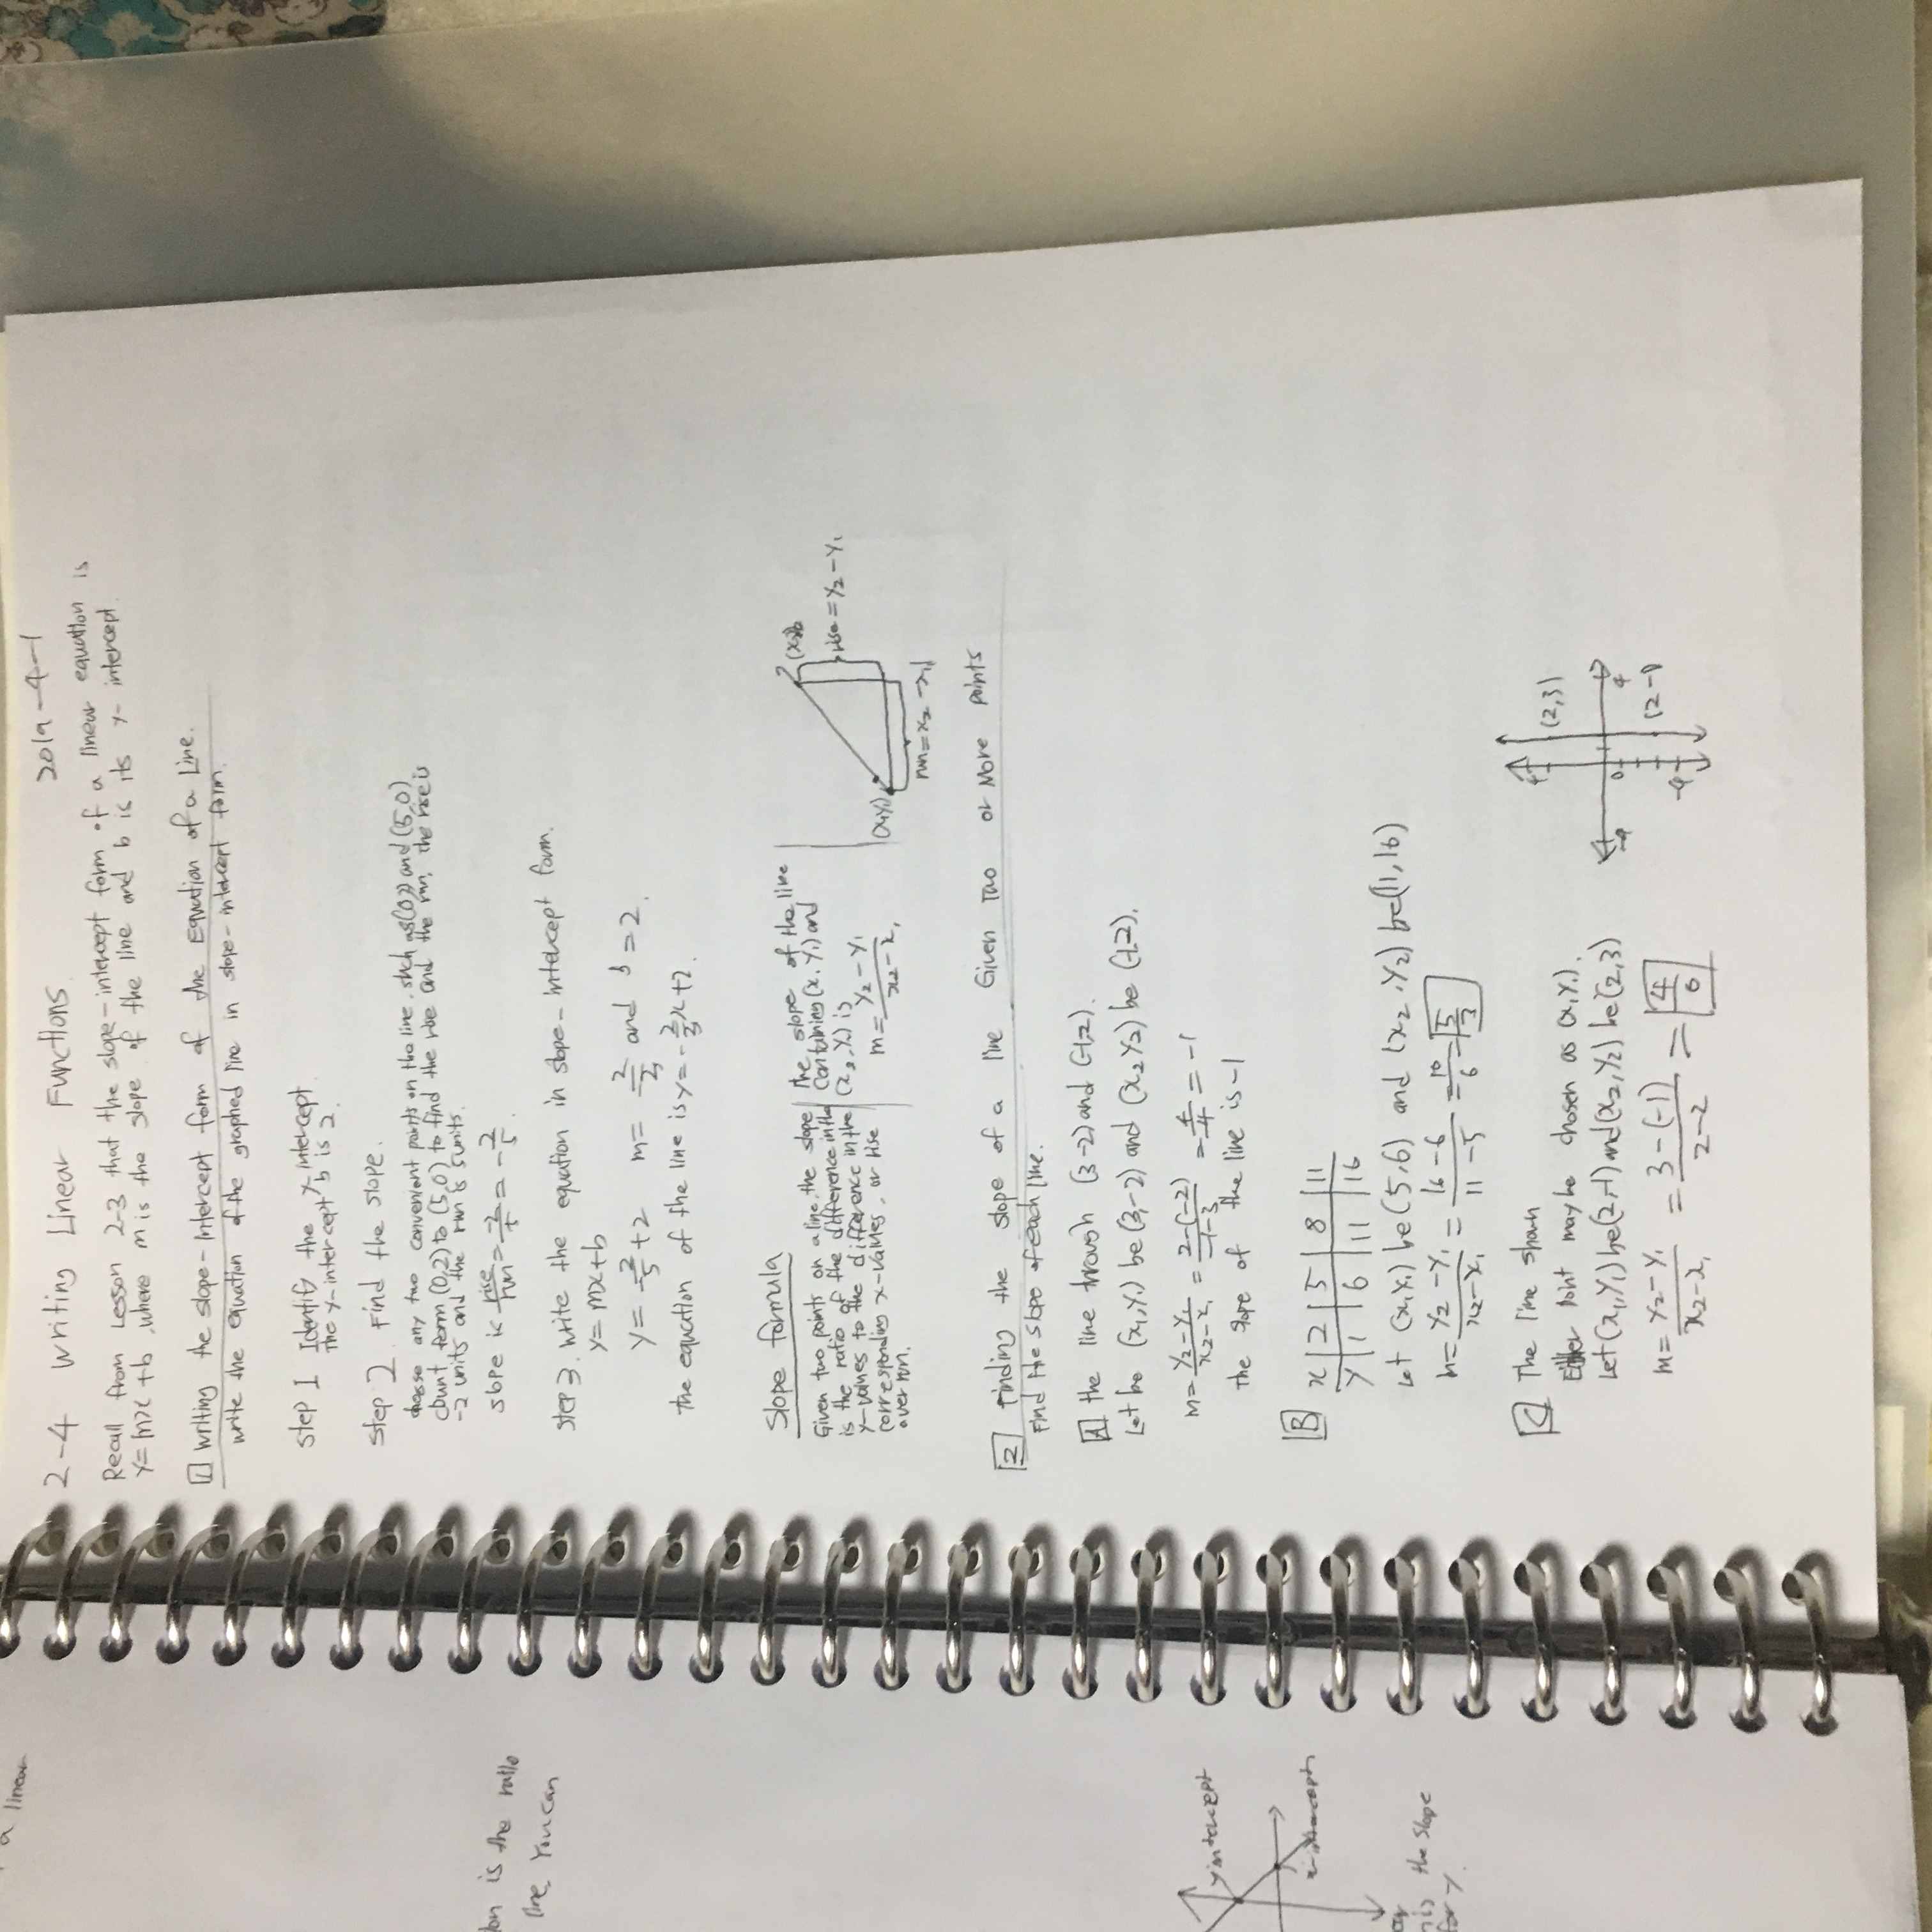 2-4 Writing Linear Functions. 2019-4-1
Recall from Lesson 2-3 that the slope-intercept form of a linear equation is
y=mx+b, where m is the slope of the line and b is its y-intercept.
1 Writing the slope-Intercept form of the Equation of a Line.
write the equation of the graphed line in slope-intercept form.
Step 1 Identify the y-intercept
The y-intercept b is 2.
Step 2. Find the slope.
choose any two convenient points on the line, such as (0,2) and (5,0)
count form (0,2) to (5,0) to find the rise and the run, the rise is
-2 units and the run is 5 units.
slope is rise/run = -2/5 = -2/5.
Step 3. Write the equation in slope-intercept form.
y=mx+b
y=-2/5+2 m= and b=2.
The equation of the line is y=-x+2.
Slope formula
Given two points on a line, the slope
is the ratio of the difference in the
y-values to the difference in the
corresponding x-values, or rise
over run.
the slope of the line
containing (x,y1) and
(x2,y2) is
m=y2-y1/x2-x1
(x1y1)
(x2
rise=y2-y1
run=x2-x1
2 Finding the slope of a line Given Two or More points
Find the slope of each line.
A the line through (3-2) and (-1,2).
Let be (x1,y1) be (3,-2) and (x2 y2) be (-1,2).
m=y2-y1/x2-x1 = 2-(-2)/-1-3 = 4/-4 = -1
the slope of the line is -1
B
x 2 5 8 11
y 1 6 11 16
Let (x1y1) be (5,6) and (x2,y2) be (11,16)
m=y2-y1/x2-x1 = 16-6/11-5 = 10/6 = 5/3
C The line shown
Either point may be chosen as (x1y1).
Let (x1,y1) be (2,-1) and (x2,y2) be (2,3)
m=y2-y1/x2-x1 = 3-(-1)/2-2 = 4/0
4
(2,3)
-4 0 4
(2-1)
-4
a linear
is the ratio
line. You can
y intercept
x-intercept
is the slope
for y.